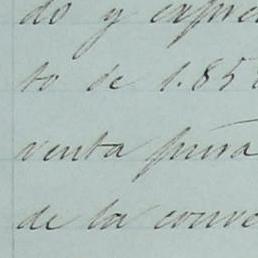 do y expre
to de 1.85
venta pura
de la conve